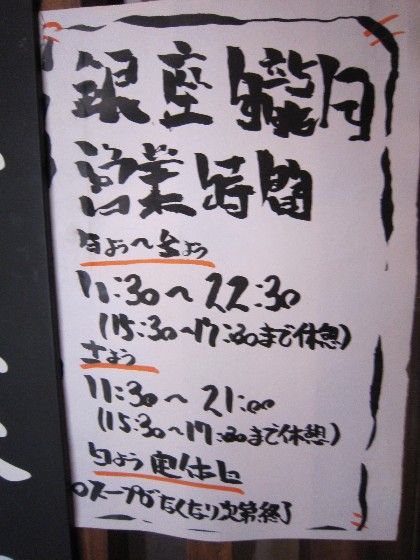 銀座 朧月
営業時間
月よう〜金よう
11:30〜22:30
(15:30〜17:30まで休憩)
土よう
11:30〜21:00
(15:30〜17:30まで休憩)
日よう 定休日
○スープがなくなり次第終了